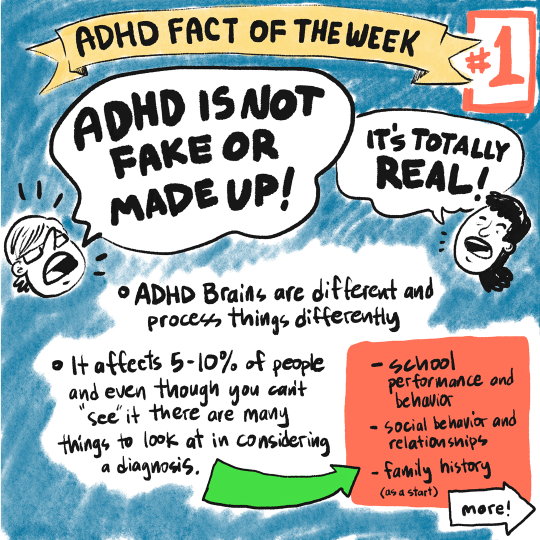 ADHD FACT OF THE WEEK
#1
ADHD IS NOT
FAKE OR
MADE UP!
IT'S TOTALLY
REAL!
• ADHD Brains are different and
process things differently
• It affects 5-10% of people
and even though you can't
"see" it there are many
things to look at in considering
a diagnosis.
- school
performance and
behavior
- social behavior and
relationships
- family history
(as a start)
more!